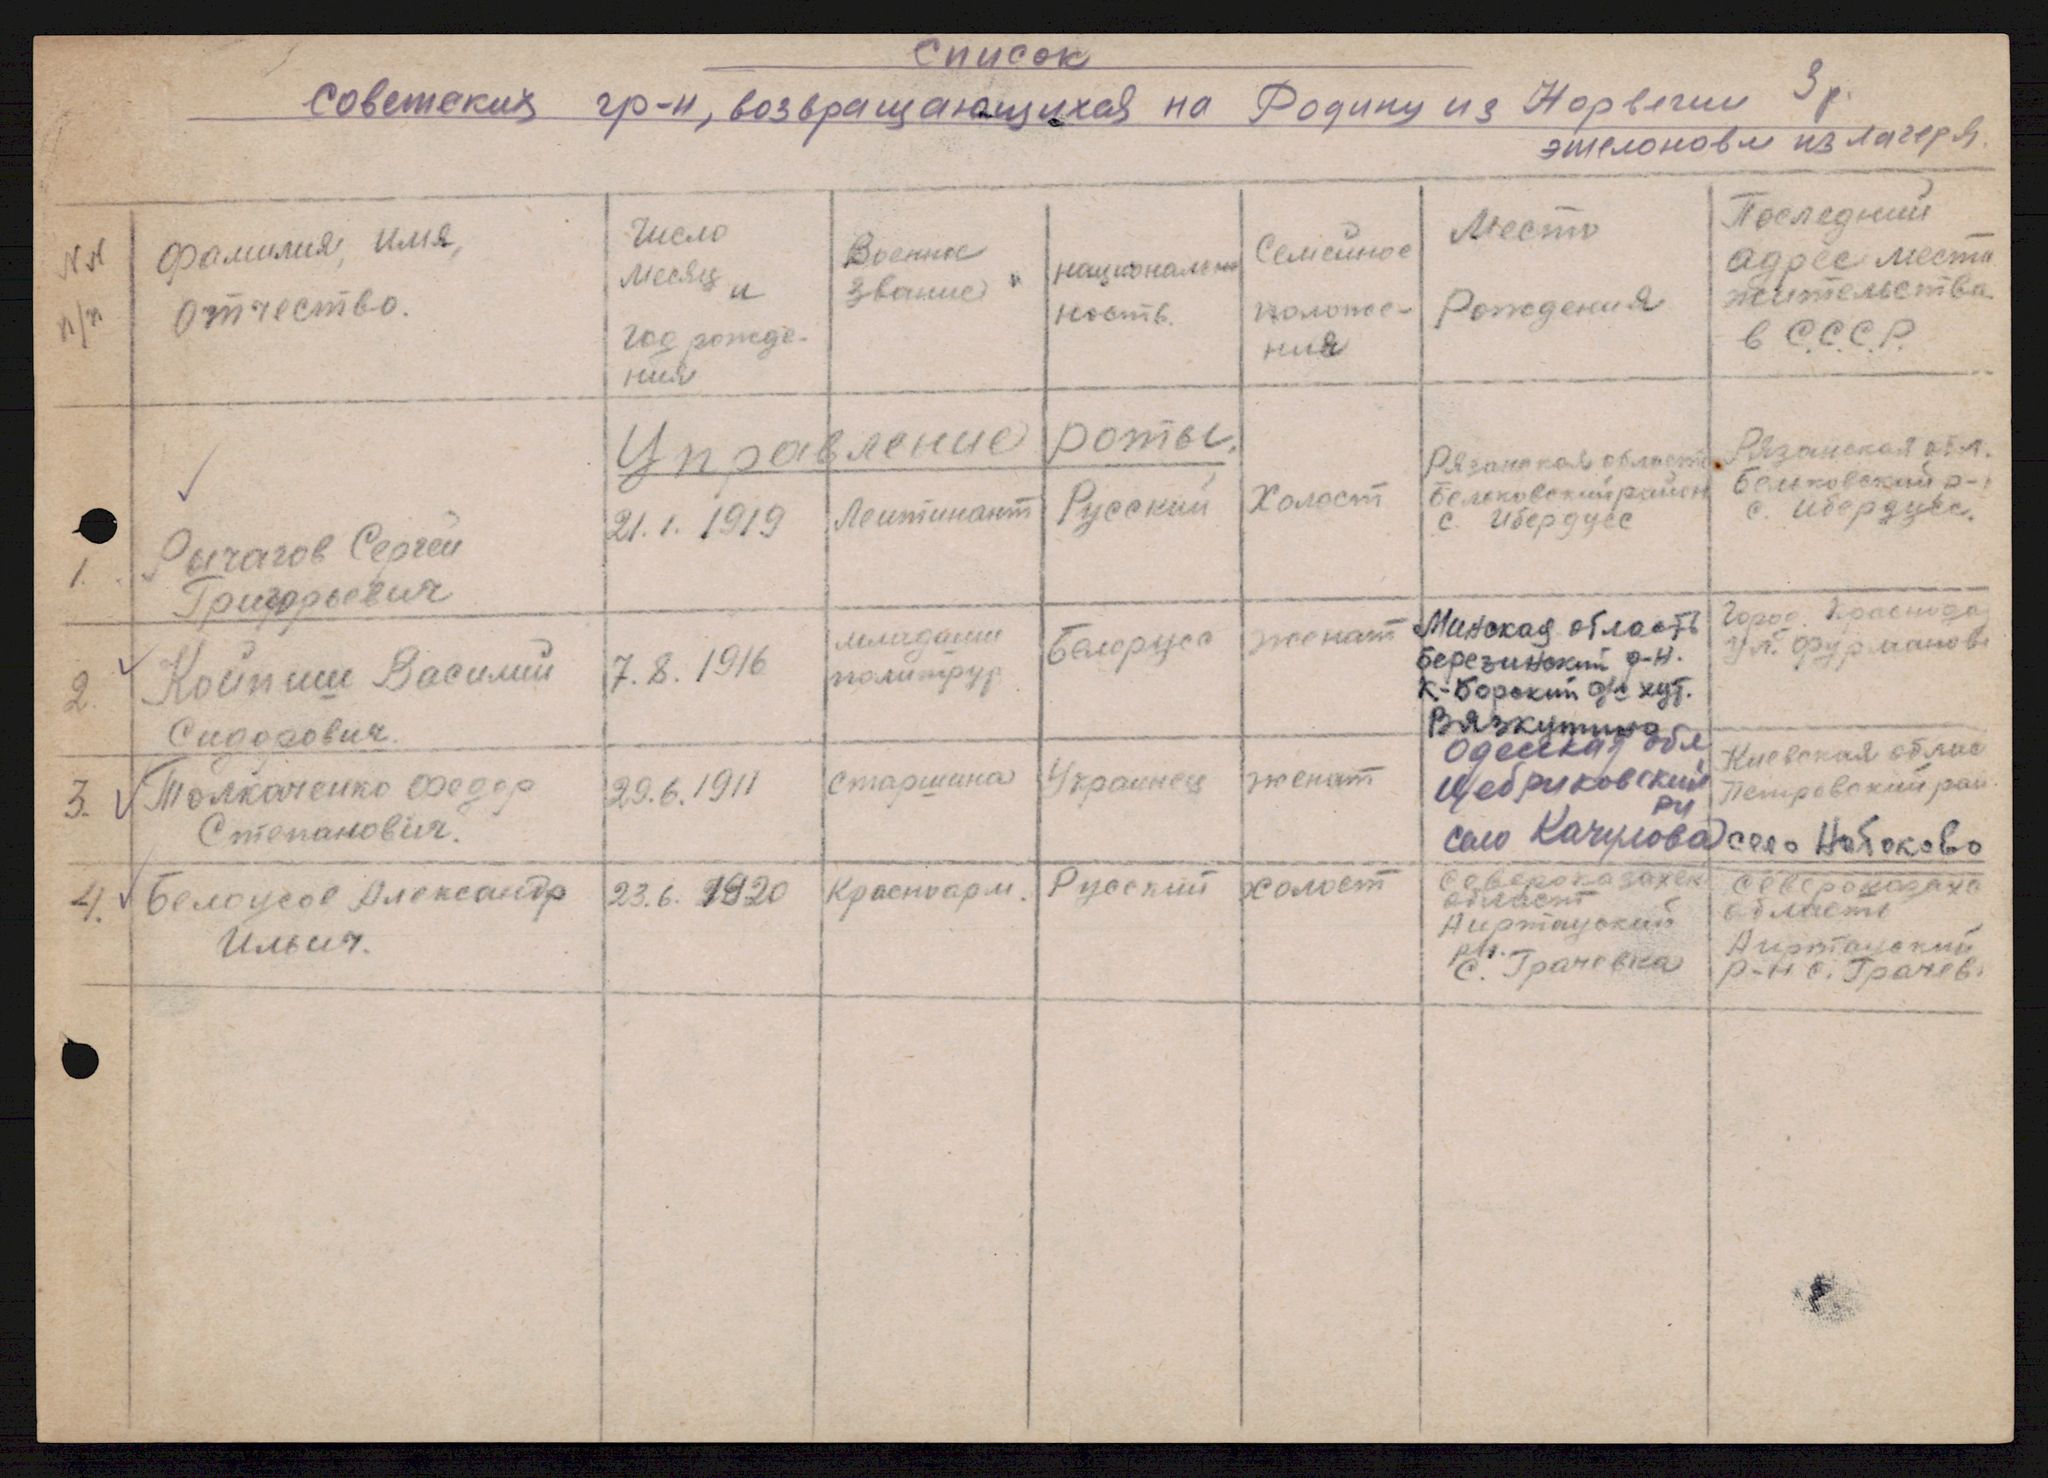 Список
советских гр-н, возвращающихся на Родину из Норвегии 3 р.
эшелоновм из лагеря.
NN
п/п
Фамилия, имя,
отчество.
Число
месяц и
год рожде-
ния
Военное
звание
националь
ность.
Семейное
положе-
ния
Место
Рождения
Последний
адрес места
жительства
в С.С.С.Р.
Управление роты.
1.
Рычагов Сергей
Григорьевич
21.1.1919
Лейтинант
Русский
Холост
Рязанская область
Бельковский район
с. Ибердусс
Рязанская обл.
Бельковский р-
с. Ибердусс.
2.
Койпиш Василий
Сидорович.
7.8.1916
младший
политрур
Белорусс
женат
Минская область
Березинский р-н.
К-Борский с/с хут.
Вязкутино
Город. Краснода
ул. Фурманова
3.
Толкаченко Федор
Степанович.
29.6.1911
старшина
Украинец
женат
Одесская обл
Цебриковский
рн
село Качурова
Киевская облас
Петровский рай
село Набоково
4.
Белоусов Александр
Ильич.
23.6. 1920
Красноарм.
Русский
холост
Североказахск
област
Аиртауский
рн.
с. Грачевка
Североказахс
область
Аиртауский
р-н с. Грачев.